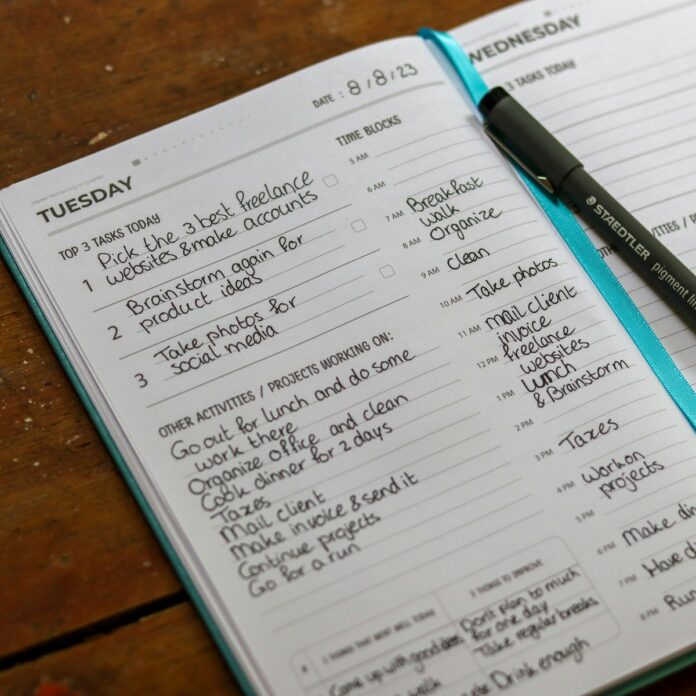 TUESDAY
DATE : 8 / 8 / 23
TOP 3 TASKS TODAY
1 Pick the 3 best freelance
websites & make accounts
2 Brainstorm again for
product ideas
3 Take photos for
social media
OTHER ACTIVITIES / PROJECTS WORKING ON:
Go out for lunch and do some
work there
Organize office and clean
Cook dinner for 2 days
Taxes
Mail client
Make invoice & send it
Continue projects
Go for a run
3 THINGS THAT WENT WELL TODAY
Come up with good ideas
walk
3 THINGS TO IMPROVE
Don't plan to much
for one day
Take regular breaks
Drink enough
TIME BLOCKS
5 AM
6 AM
7 AM Breakfast
Walk
8 AM Organize
9 AM Clean
10 AM Take photos
11 AM Mail client
invoice
12 PM freelance
websites
1 PM Lunch
& Brainstorm
2 PM
3 PM Taxes
4 PM Work on
projects
5 PM
6 PM Make din
7 PM Have di
8 PM Run
WEDNESDAY
3 TASKS TODAY
ACTIVITIES /
STAEDTLER
pigment lin